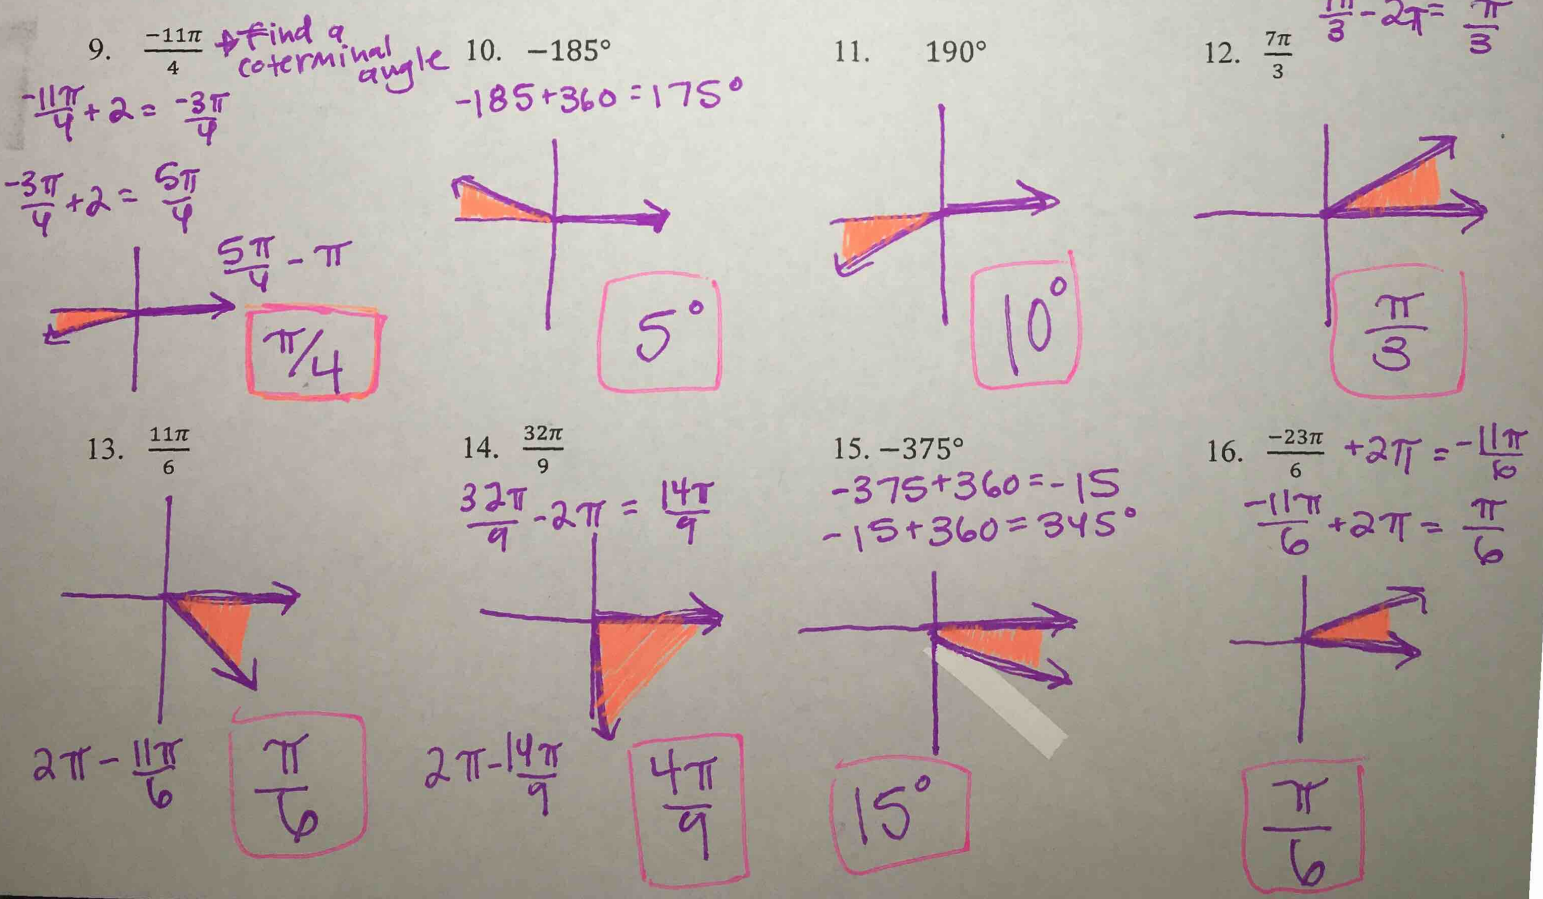 9. -11π/4 → Find a coterminal angle
-11π/4 + 2 = -3π/4
-3π/4 + 2 = 5π/4
5π/4 - π
π/4
10. −185°
-185+360=175°
5°
11. 190°
10°
12. 7π/3
7π/3 - 2π = π/3
π/3
13. 11π/6
2π - 11π/6
π/6
14. 32π/9
32π/9 - 2π = 14π/9
2π - 14π/9
4π/9
15. −375°
-375+360=-15
-15+360=345°
15°
16. -23π/6 +2π = -11π/6
-11π/6 + 2π = π/6
π/6